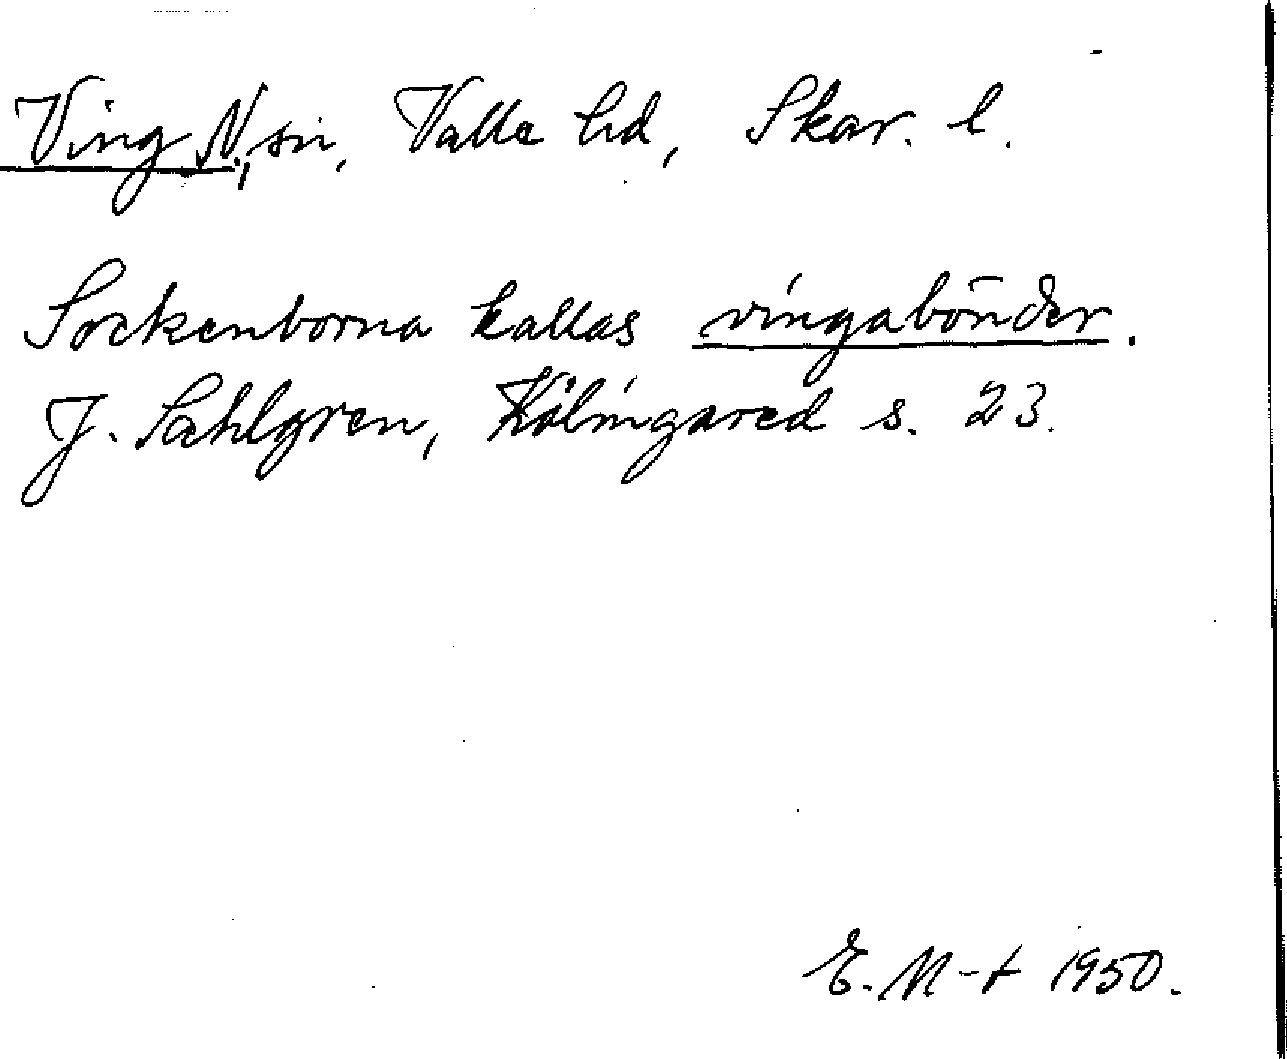 Ving N., sn, Valle hd, Skar. l.
Sockenborna kallas vingabönder.
J. Sahlgren, Kölingared s. 23.
E. M-t 1950.